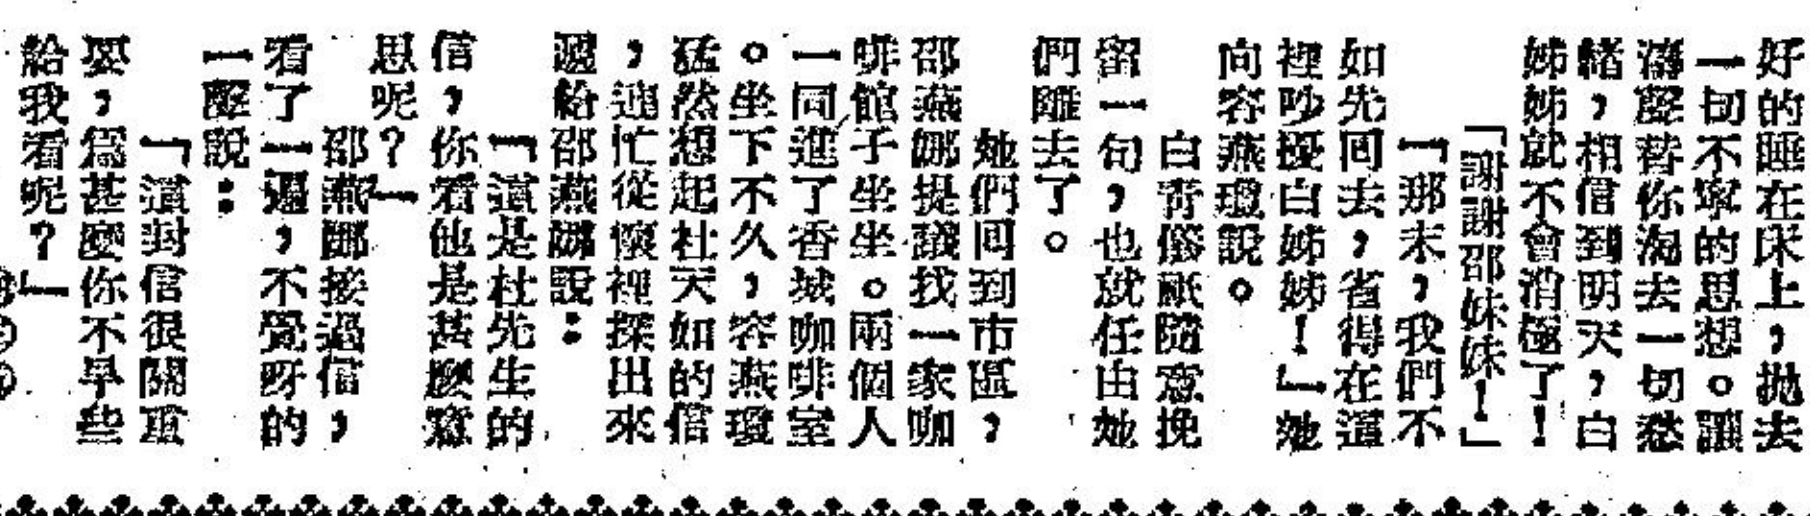 好的睡在床上，拋去
一切不寧的思想。讓
濤聲替你淘去一切愁
緒，相信到明天，白
姊姊就不會消極了！
「謝謝邵妹妹！」
「那末，我們不
如先回去，省得在這
裡吵擾白姊姊！」她
向容燕瓊說。
白青俗祇隨意挽
留一句，也就任由她
們離去了。
她們回到市區，
邵燕娜提議找一家咖
啡館子坐坐。兩個人
一同進了香城咖啡室
。坐下不久，容燕瓊
猛然想起杜天如的信
，連忙從懷裡探出來
遞給邵燕娜說：
「這是杜先生的
信，你看他是甚麼意
思呢？」
邵燕娜接過信，
看了一遍，不覺呀的
一聲說：
「這封信很關重
要，爲甚麼你不早些
給我看呢？」